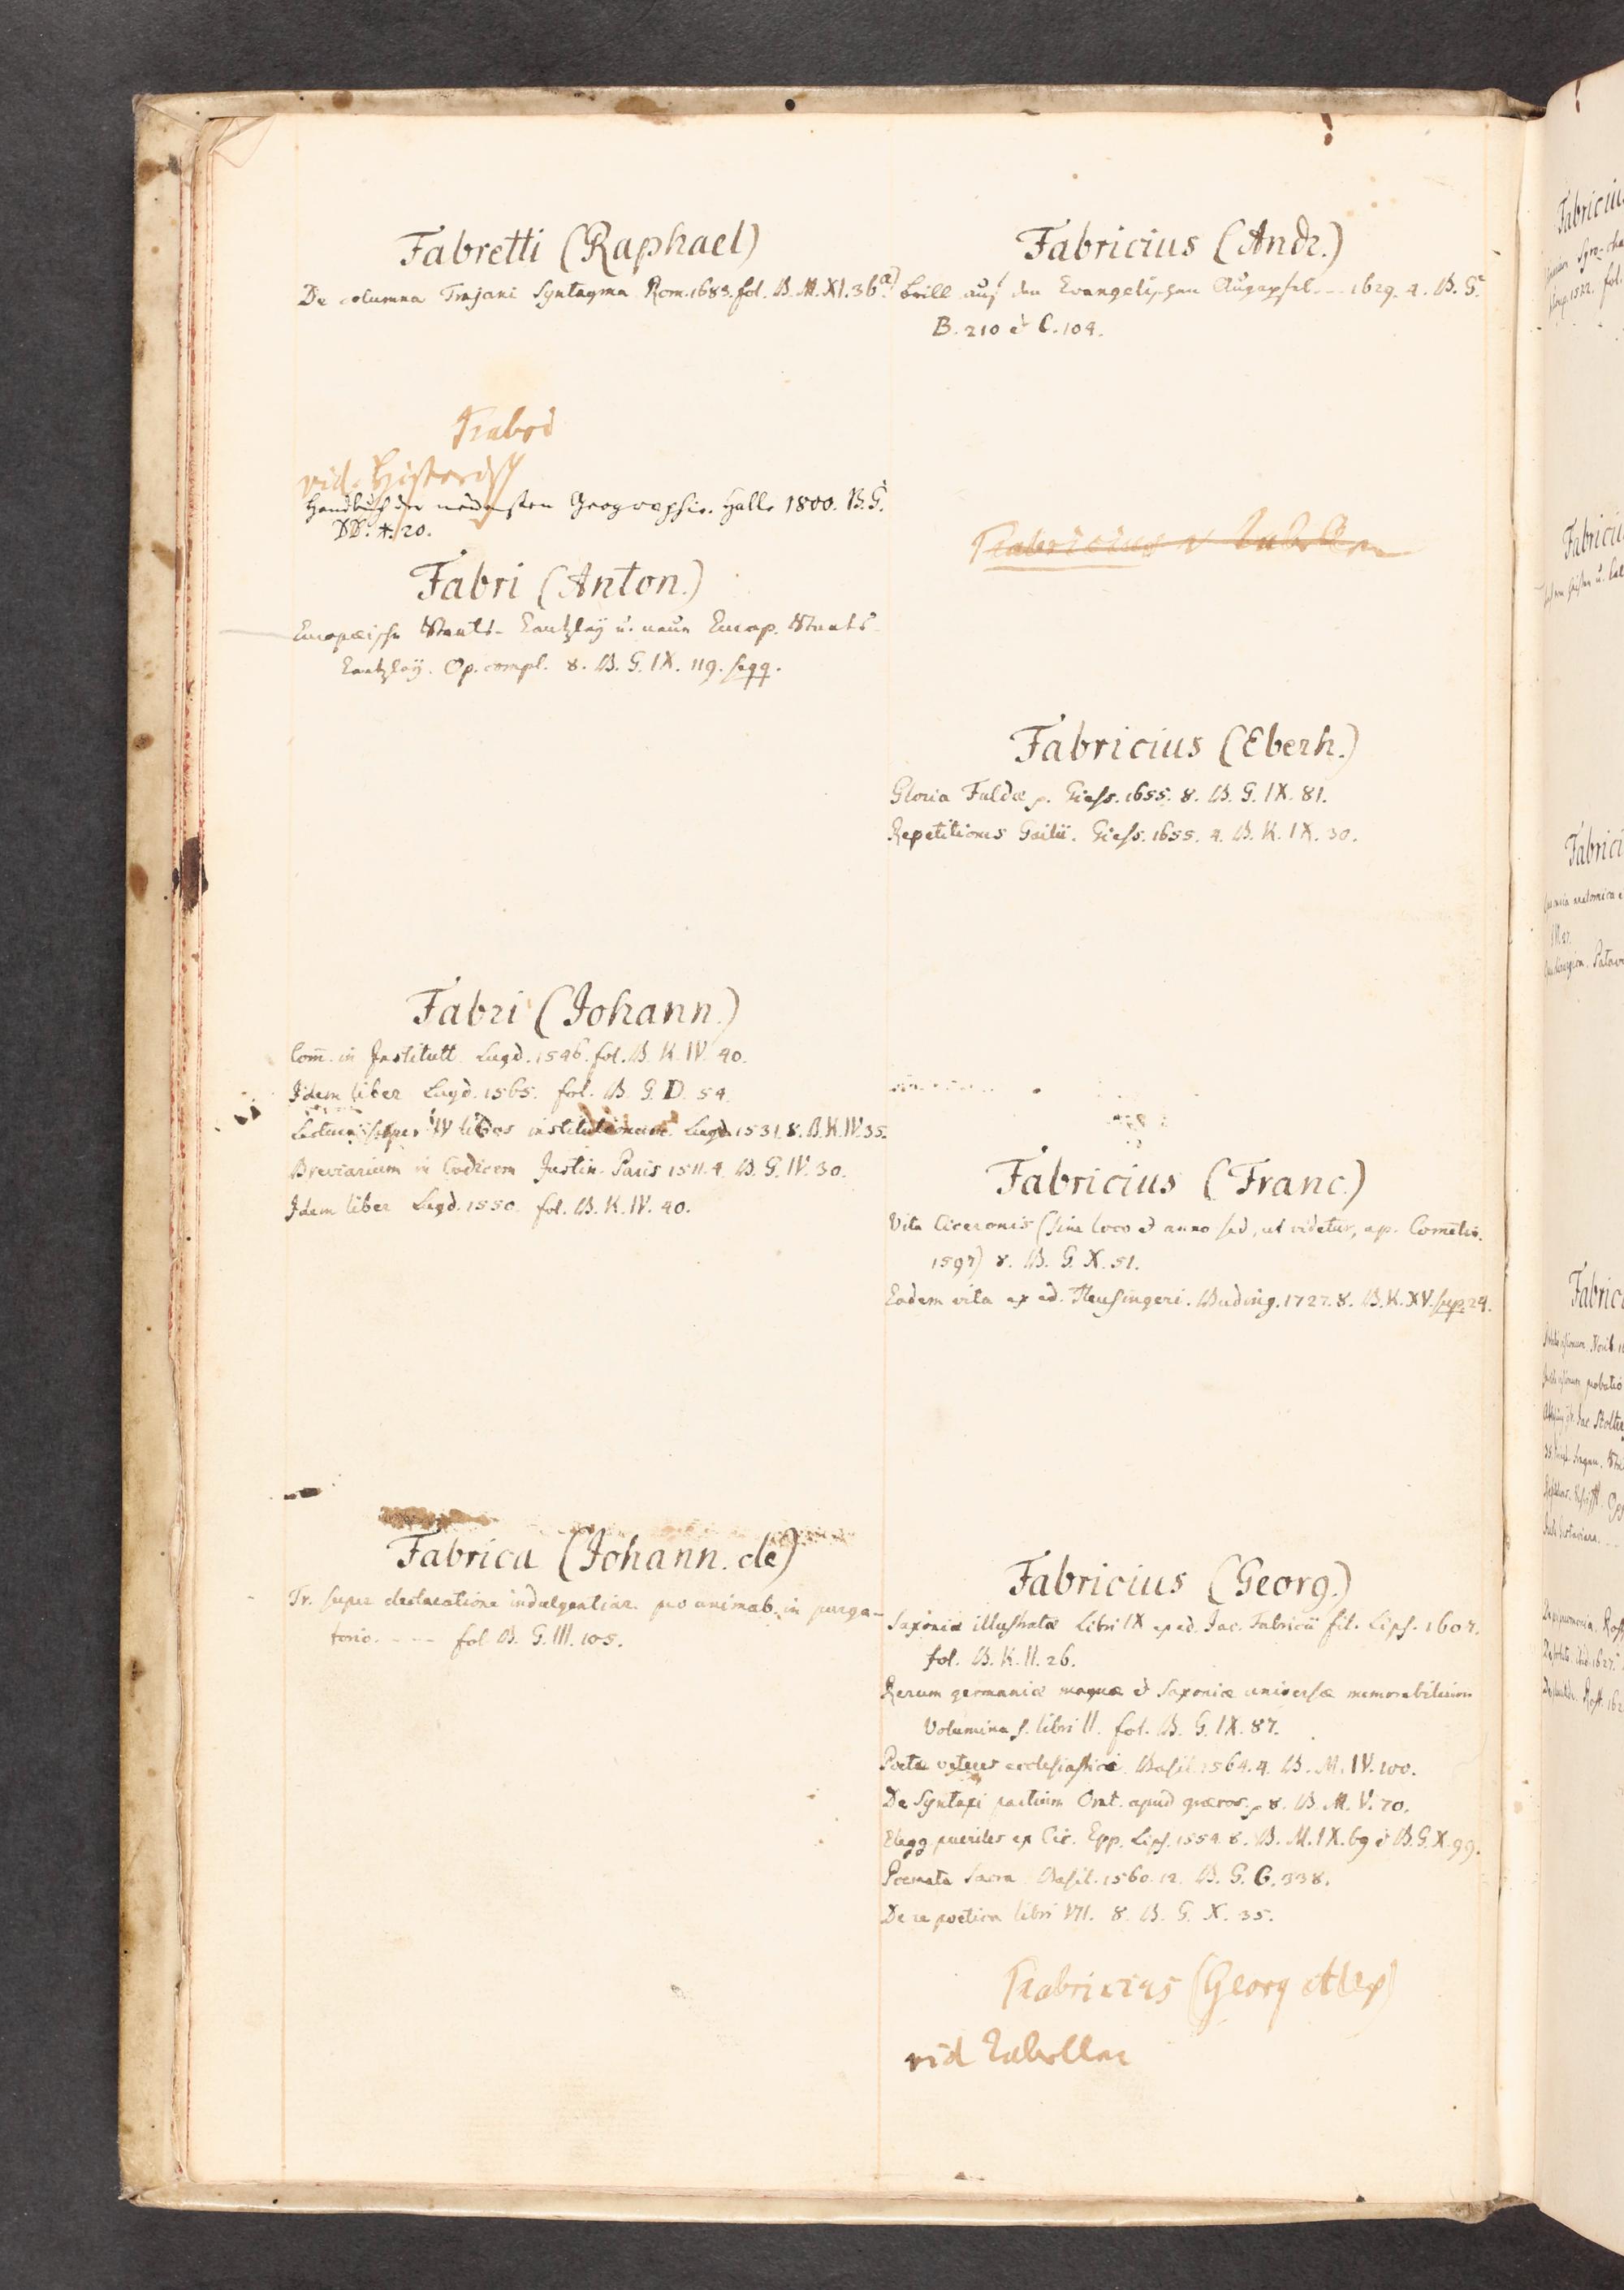 Fabretti (Raphael)
De columna Trajani Syntagma Rom. 1683. fol. B. M. XI. 36 a)
vid. Historisch
Handbuch der neuesten Geographie. Halle 1800. B. G.
DD. 4. 20.
Fabri (Anton.)
Europæische Staats-Cantzley u. neue Europ. Staats
Cantzley. Op. compl. 8. B. G. IX. 119. seqq.
Fabri (Johann.)
Com̄. in Institutt. Lugd. 1546. fol. B. K. IV. 40.
Idem liber Lugd. 1565. fol. B. G. D. 54.
Lectura super IV libros institutionum. Lugd. 1531. 8. B. K. IV. 35.
Breviarium in Codicem Justin. Paris 1511. 4. B. G. IV. 30.
Idem liber Lugd. 1550. fol. B. K. IV. 40.
Fabrica (Johann. de)
Tr. super declaratione indulgentiar. pro animab. in purga-
torio. - - - fol. B. G. III. 105.
Fabricius (Andr.)
Brill auf den Evangelischen Augapfel. - - 1629. 4. B. G.
B. 210 et C. 104.
Fabricius (Eberh.)
Gloria Fuldæ p. Giess. 1655. 8. B. G. IX. 81.
Repetitiones Gailii. Giess. 1655. 4. B. K. IX. 30.
Fabricius (Franc.)
Vita Ciceronis (sine loco et anno sed, ut videtur, ap. Comelin.
1597) 8. B. G. X. 51.
Eadem vita ex ed. Heusingeri. Buding. 1727. 8. B. K. XV. sup. 24.
Fabricius (Georg.)
Saxoniæ illustratæ Libri IX ex ed. Jac. Fabricii fil. Lips. 1607.
fol. B. K. II. 26.
Rerum germaniæ magnæ et Saxoniæ universæ memorabilium
Volumina s. libri II. fol. B. G. IX. 87.
Poetæ veteres ecclesiastici Basil. 1564. 4. B. M. IV. 100.
De Syntaxi partium Orat. apud græcos. p 8. B. M. V. 70.
Elegg. pueriles ex Cic. Epp. Lips. 1554. 8. B. M. IX. 69 et B. G. X. 99.
Poemata Sacra Basil. 1560. 12. B. G. G. 338.
De re poetica libri VII. 8. B. G. X. 35.
Fabricius (Georg Alex)
vid Tabellen